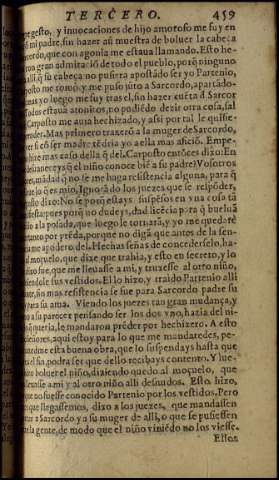 TERCERO. 459
gesto, y inuocaciones de hijo amoroso me fuy en
mi padre, sin hazer aũ muestra de boluer la cabeça
cordo, que con agonia me estaua llamando. Esto he-
gran admiraciõ de todo el pueblo, porq̃ ninguno
alli q̃ su cabeça no pusiera apostãdo ser yo Partenio,
posto me tomò, y me puso jũto a Sarcordo, apartãdo-
y yo luego me fuy tras el, sin hazer cuẽta d̃ Sarcor
Todos estauã atonitos, no podiẽdo dezir otra cosa, sal
Carposto me auia hechizado, y assi por tal le quisie-
prender. Mas primero traxerõ a la muger de Sarcordo,
ser madre tẽdria yo a ella mas aficiõ. Empe-
hize mas caso della q̃ del. Carposto entõces dixo: En
maneceys q̃ el niño conoce biẽ a su padre? Vosotros
mãdad q̃ no se me haga resistencia alguna, para q̃
lo q̃ es mio. Ignorãdo los juezes que se respõder,
dixo: No se porq̃ estays suspẽsos en vna cosa tã
pues porq̃ no dudeys, dad licẽcia para q̃ bueluã
a la posada, que luego le tornarà, y yo me quedarè
tanto por prẽda, porque no diga que antes de la sen-
me apodero del. Hechas señas de concederselo, ha-
moçuelo, que dixe que trahia, y esto en secreto, y lo
fue, que me lleuasse a mi, y truxesse al otro niño,
sus vestidos. El lo hizo, y traìdo Partenio alli
mas resistencia se fue para Sarcordo padre su
para su ama. Viendo los juezes tan gran mudança, y
a su parecer pensando ser los dos vno, hazia del ni-
queria, le mandaron prẽder por hechizero. A esto
señores, aqui estoy para lo que me mandaredes, pe-
esta buena obra, que lo suspendays hasta que
podra ser que dello recibays contento. Y lue-
boluer el niño, diziendo quedo al moçuelo, que
a mi y al otro niño alli desnudos. Esto hizo,
no fuesse conocido Partenio por los vestidos. Pero
que llegassemos, dixo a los juezes, que mandassen
a Sarcordo y a su muger de alli, o que se pusiessen
la gente, de modo que el niño viniẽdo no los viesse.
Ellos